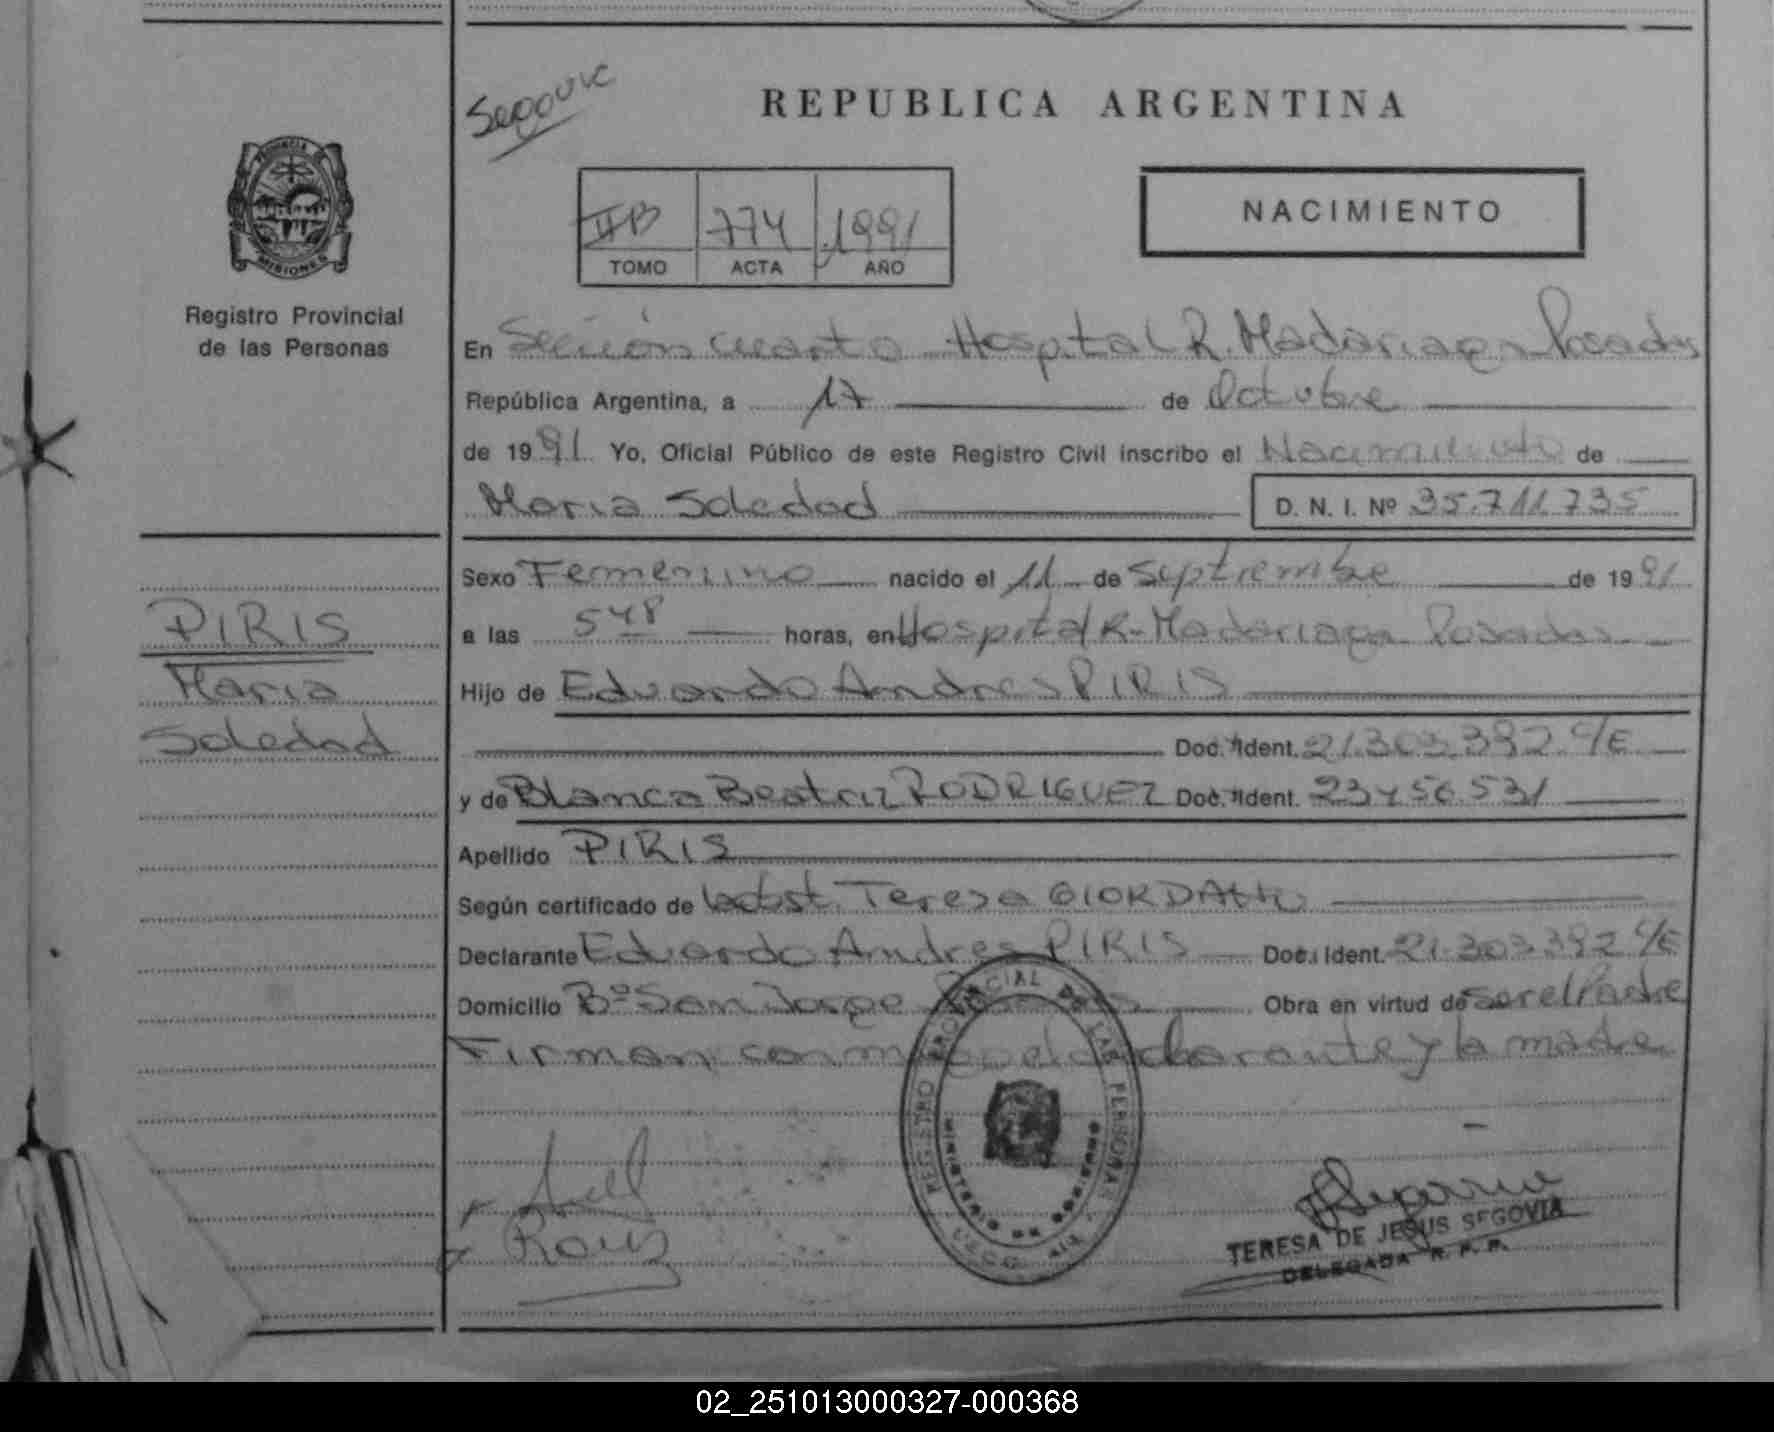 Segovia
REPUBLICA ARGENTINA
PROVINCIA DE
MISIONES
IIB 774 1991
TOMO ACTA AÑO
NACIMIENTO
Registro Provincial
de las Personas
En Sección Cuarta Hospital R. Madariaga Posadas
República Argentina, a 17 de Octubre
de 1991 Yo, Oficial Público de este Registro Civil inscribo el Nacimiento de
Maria Soledad D. N. I. Nº 35.711.735
Sexo Femenino nacido el 11 de Septiembre de 1991
a las 5 48 horas, en Hospital R. Madariaga Posadas
PIRIS
Maria
Soledad
Hijo de Eduardo Andres PIRIS
Doc. Ident. 21.303.392 C/E
y de Blanca Beatriz RODRIGUEZ Doc. Ident. 23456531
Apellido PIRIS
Según certificado de Teresa GIORDANO
Declarante Eduardo Andres PIRIS Doc. Ident. 21.303.392 C/E
Domicilio Bº San Jorge Posadas Obra en virtud de ser el Padre
Firman conmigo el declarante y la madre
REGISTRO PROVINCIAL DE LAS PERSONAS
MINISTERIO DE GOBIERNO
TERESA DE JESUS SEGOVIA
DELEGADA R. P. P.
02_251013000327-000368